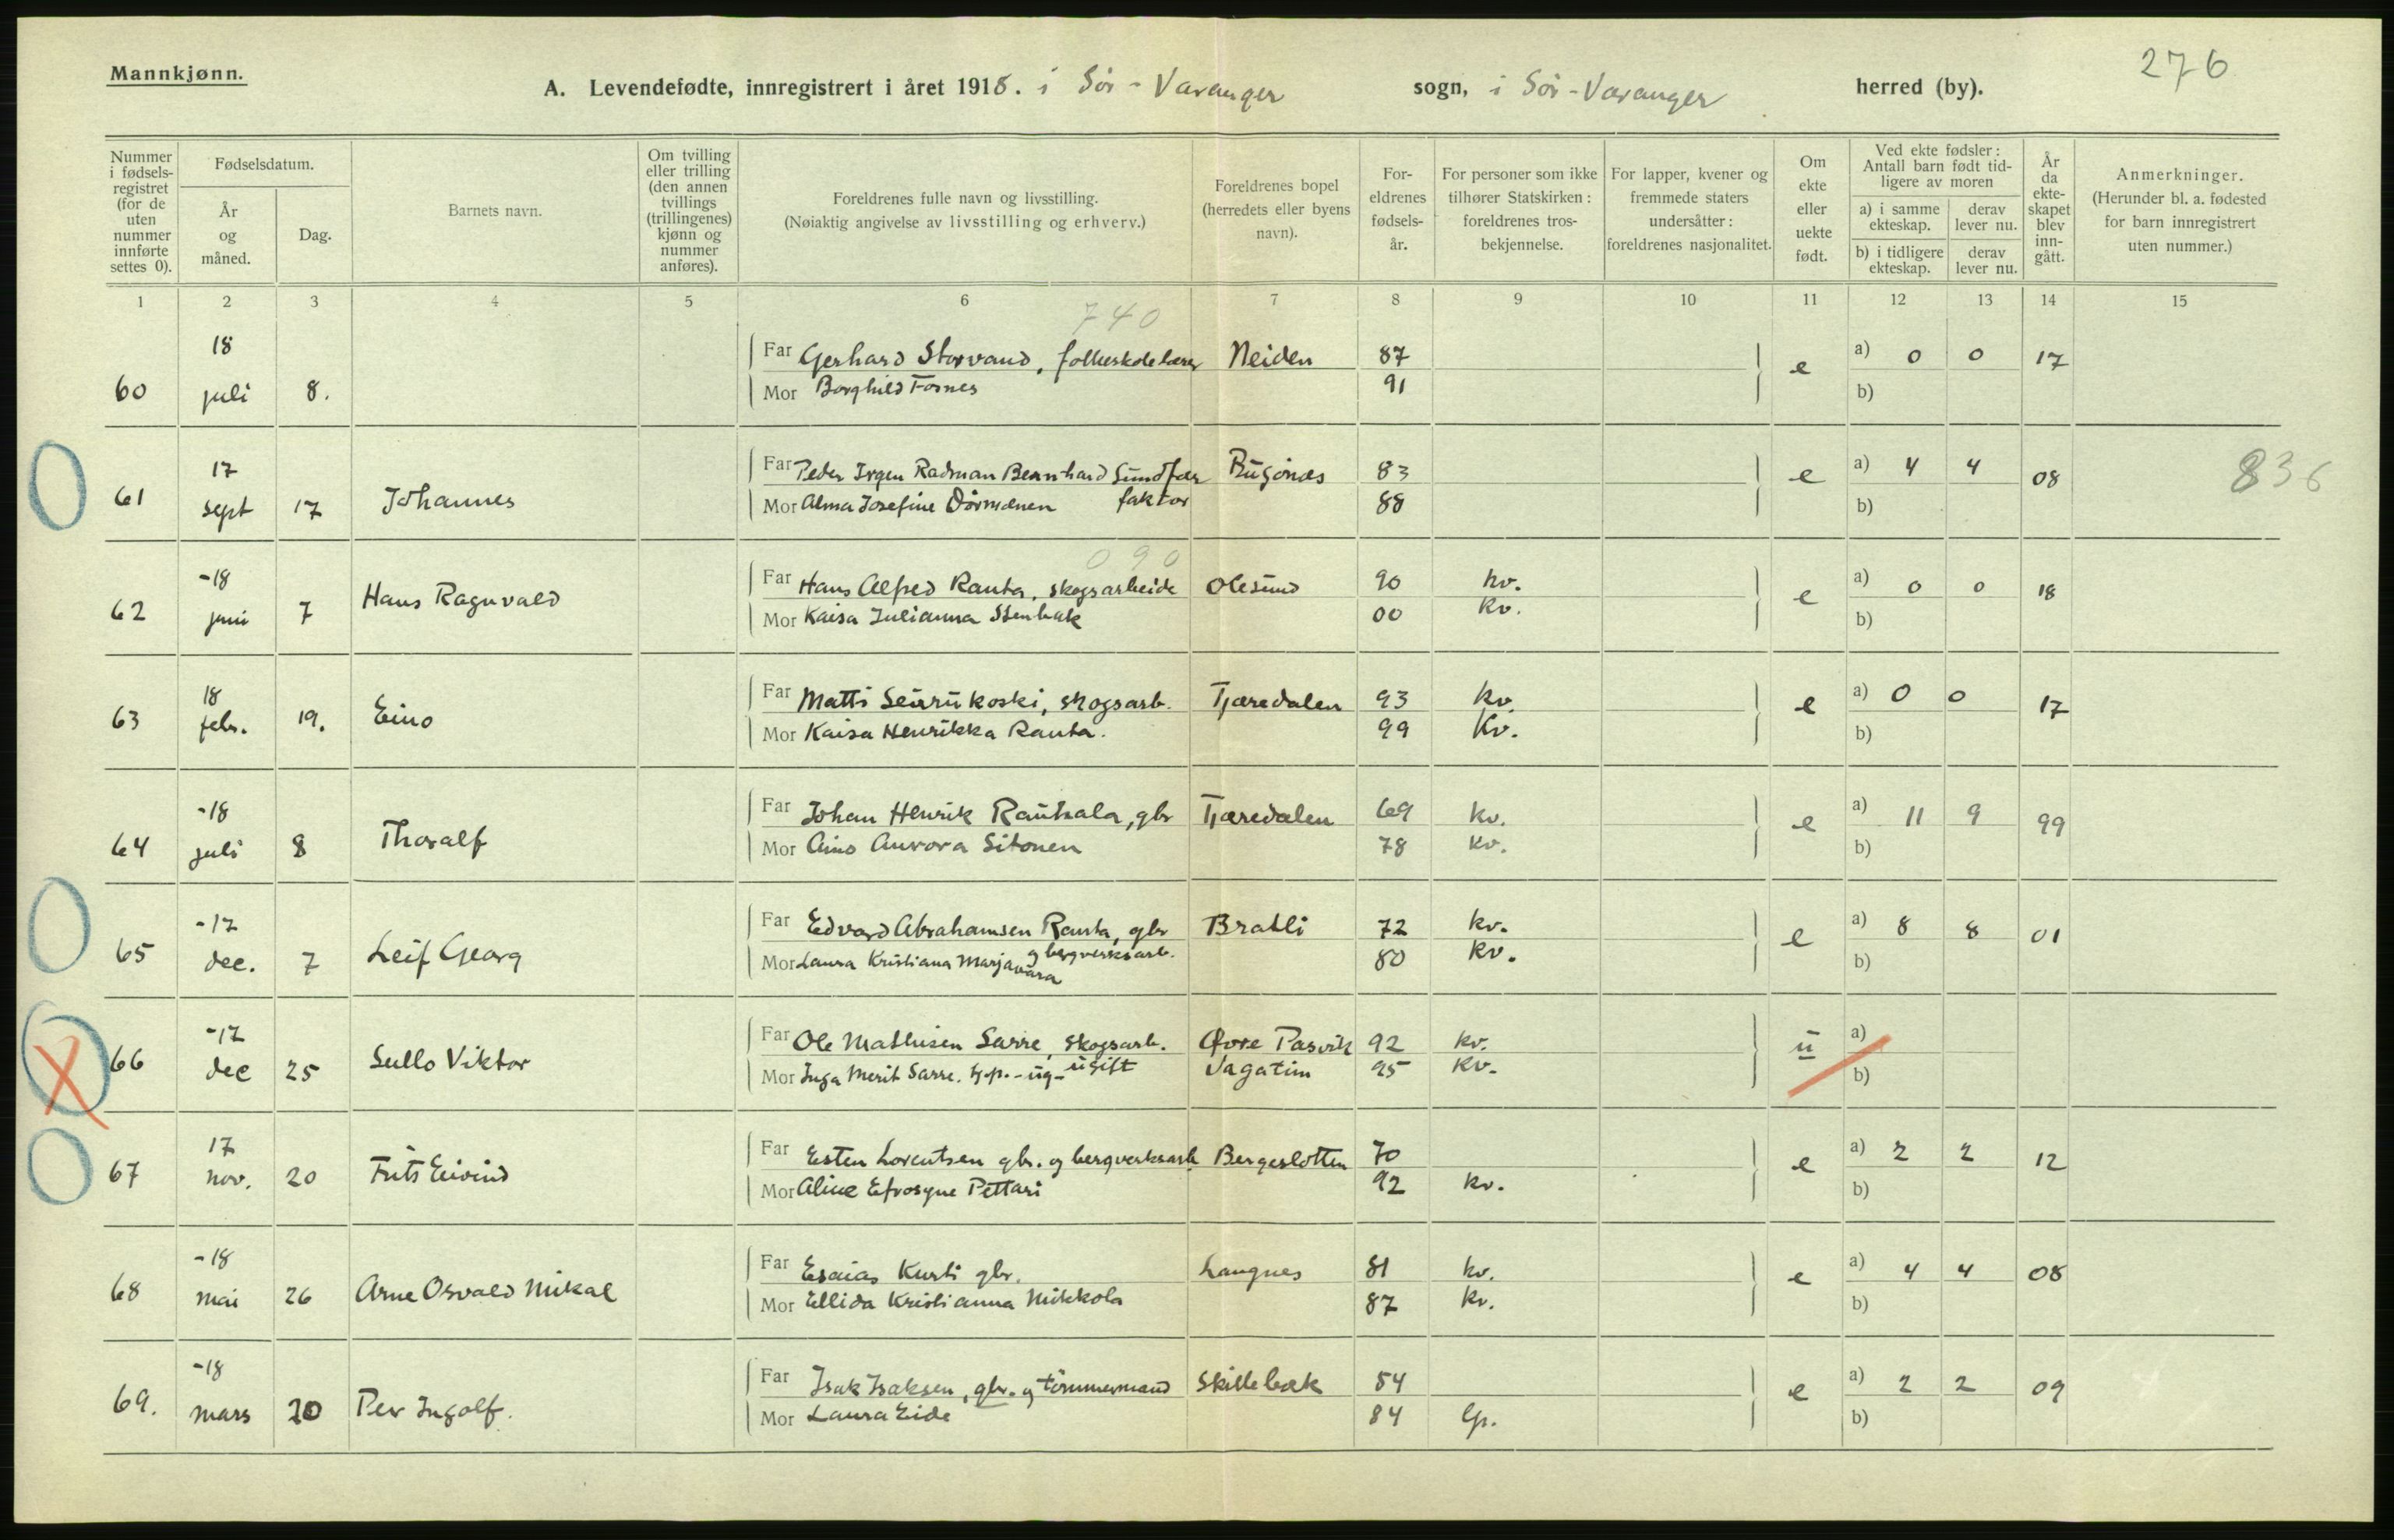 276
Mannkjønn.
A. Levendefødte, innregistrert i året 1918. i Sör-Varanger sogn, i Sör-Varanger herred (by).
Nummer i fødsels-registret (for de uten nummer innførte settes 0).
Fødselsdatum.
År og måned.
Dag.
Barnets navn.
Om tvilling eller trilling (den annen tvillings (trillingenes) kjønn og nummer anføres).
Foreldrenes fulle navn og livsstilling.
(Nøiaktig angivelse av livsstilling og erhverv.)
Foreldrenes bopel (herredets eller byens navn).
For-eldrenes fødsels-år.
For personer som ikke tilhører Statskirken: foreldrenes tros-bekjennelse.
For lapper, kvener og fremmede staters undersåtter: foreldrenes nasjonalitet.
Om ekte eller uekte født.
Ved ekte fødsler: Antall barn født tid-ligere av moren
a) i samme ekteskap. derav lever nu.
b) i tidligere ekteskap. derav lever nu.
År da ekte-skapet blev inn-gått.
Anmerkninger.
(Herunder bl. a. fødested for barn innregistrert uten nummer.)
1 2 3 4 5 6 7 8 9 10 11 12 13 14 15
740
18 Far Gerhard Storvand, folkeskolelærer Neiden 87 e a) 0 0 17
60 juli 8. Mor Borghild Fosnes 91 b)
17 Far Peder Irgen Radman Bernhard Sundfær Bugönæs 83 e a) 4 4 08 836
61 sept 17 Johannes Mor Alma Josefine faktor 88 b)
090
-18 Far Hans Alfred Ranta, skogsarbeide Olesund 90 kv. e a) 0 0 18
62 juni 7 Hans Ragnvald Mor Kaisa Julianna Stenbak 00 kv. b)
18 Far Matti Seurukoski, skogsarb. Tjæredalen 93 kv. e a) 0 0 17
63 febr. 19. Eino Mor Kaisa Henrikka Ranta. 99 kv. b)
-18 Far Johan Henrik Rautiala, gbr Tjæredalen 69 kv. e a) 11 9 99
64 juli 8 Thoralf Mor Aino Aurora Sitonen 78 kv. b)
-17 Far Edvard Abrahamsen Ranta, gbr Bratli 72 kv. e a) 8 8 01
og bergverksarb.
65 dec. 7 Leif Georg Mor Laura Kristiana Marjavara 80 kv. b)
-17 Far Ole Mathisen Sarre, skogsarb. Øvre Pasvik 92 kv. u a)
66 dec 25 Sullo Viktor Mor Inga Merit Sarre. tj.p. - ug- ugift Vagatim 95 kv. b)
17 Far Esten Lorentsen gbr. og bergverksarb. Bergeslotten 70 e a) 2 2 12
67 nov. 20 Frits Eivind Mor Aline Efrosyne Pettari 92 kv. b)
-18 Far Esaias Kurti gbr. Langnes 81 kv. e a) 4 4 08
68 mai 26 Arne Osvald Mikal Mor Ellida Kristianna Mikkola 87 kv. b)
-18 Far Isak Isaksen, gbr. og tömmermand Skillebæk 54 e a) 2 2 09
69. mars 20 Per Ingolf. Mor Laura Eide 84 lp. b)